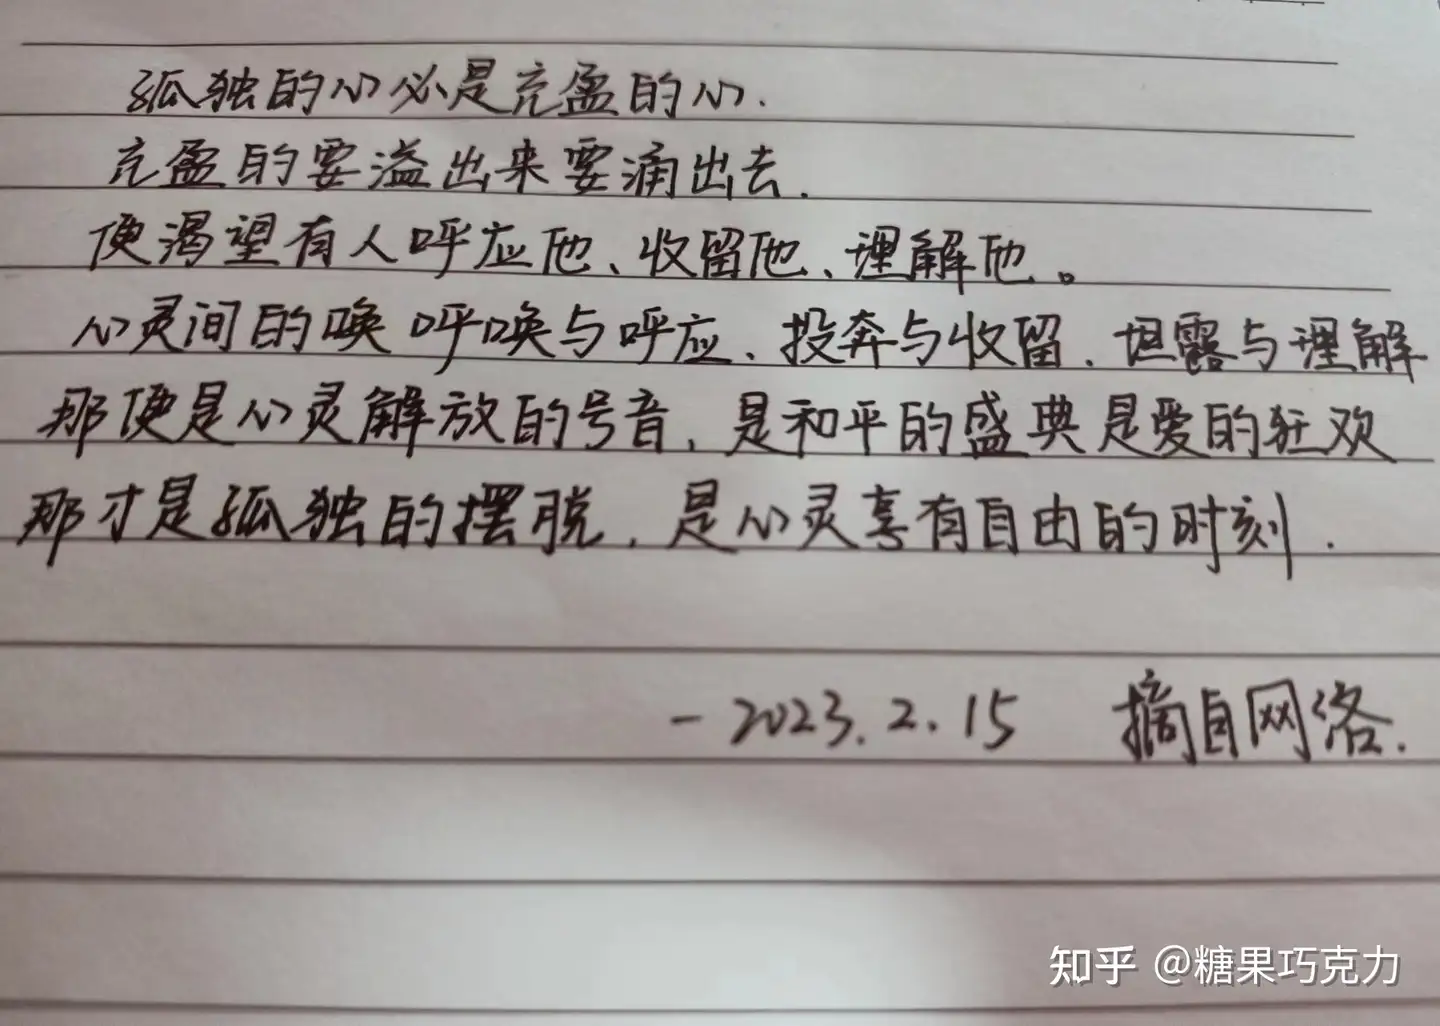 孤独的心必是充盈的心.
充盈的要溢出来要涌出去.
便渴望有人呼应他、收留他、理解他。
心灵间的唤 呼唤与呼应、投奔与收留、坦露与理解
那便是心灵解放的号音,是和平的盛典是爱的狂欢
那才是孤独的摆脱,是心灵享有自由的时刻.
-2023.2.15 摘自网络.
知乎 @糖果巧克力